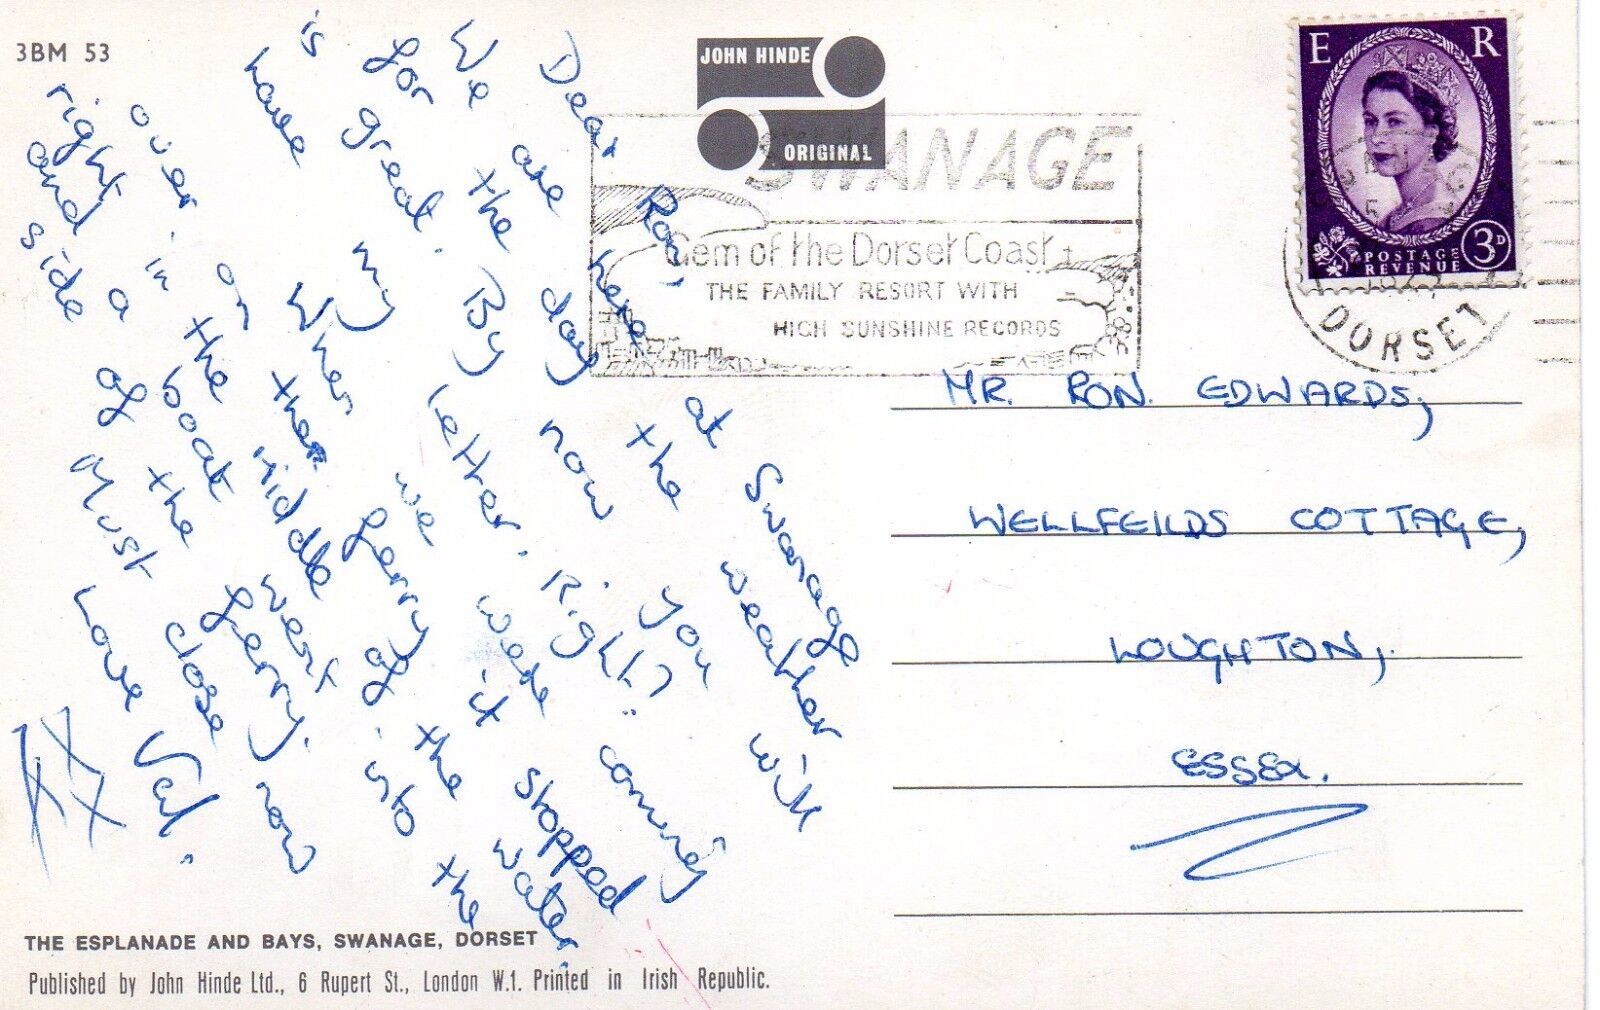 3BM 53
JOHN HINDE
ORIGINAL
SWANAGE
Gem of the Dorset Coast
THE FAMILY RESORT WITH
HIGH SUNSHINE RECORDS
E R
POSTAGE
REVENUE
3D
DORSET
Dear Ron,
We are here at Swanage
for the day the weather
is great. By now you will
have my letter. Right?
When we were coming
over on the ferry it stopped
right in the middle of the water.
and a boat went into the
side of the ferry. now
Must close
Love Val.
XXX
MR. RON. EDWARDS,
WELLFEILDS COTTAGE,
LOUGHTON,
ESSEX.
THE ESPLANADE AND BAYS, SWANAGE, DORSET
Published by John Hinde Ltd., 6 Rupert St., London W.1. Printed in Irish Republic.